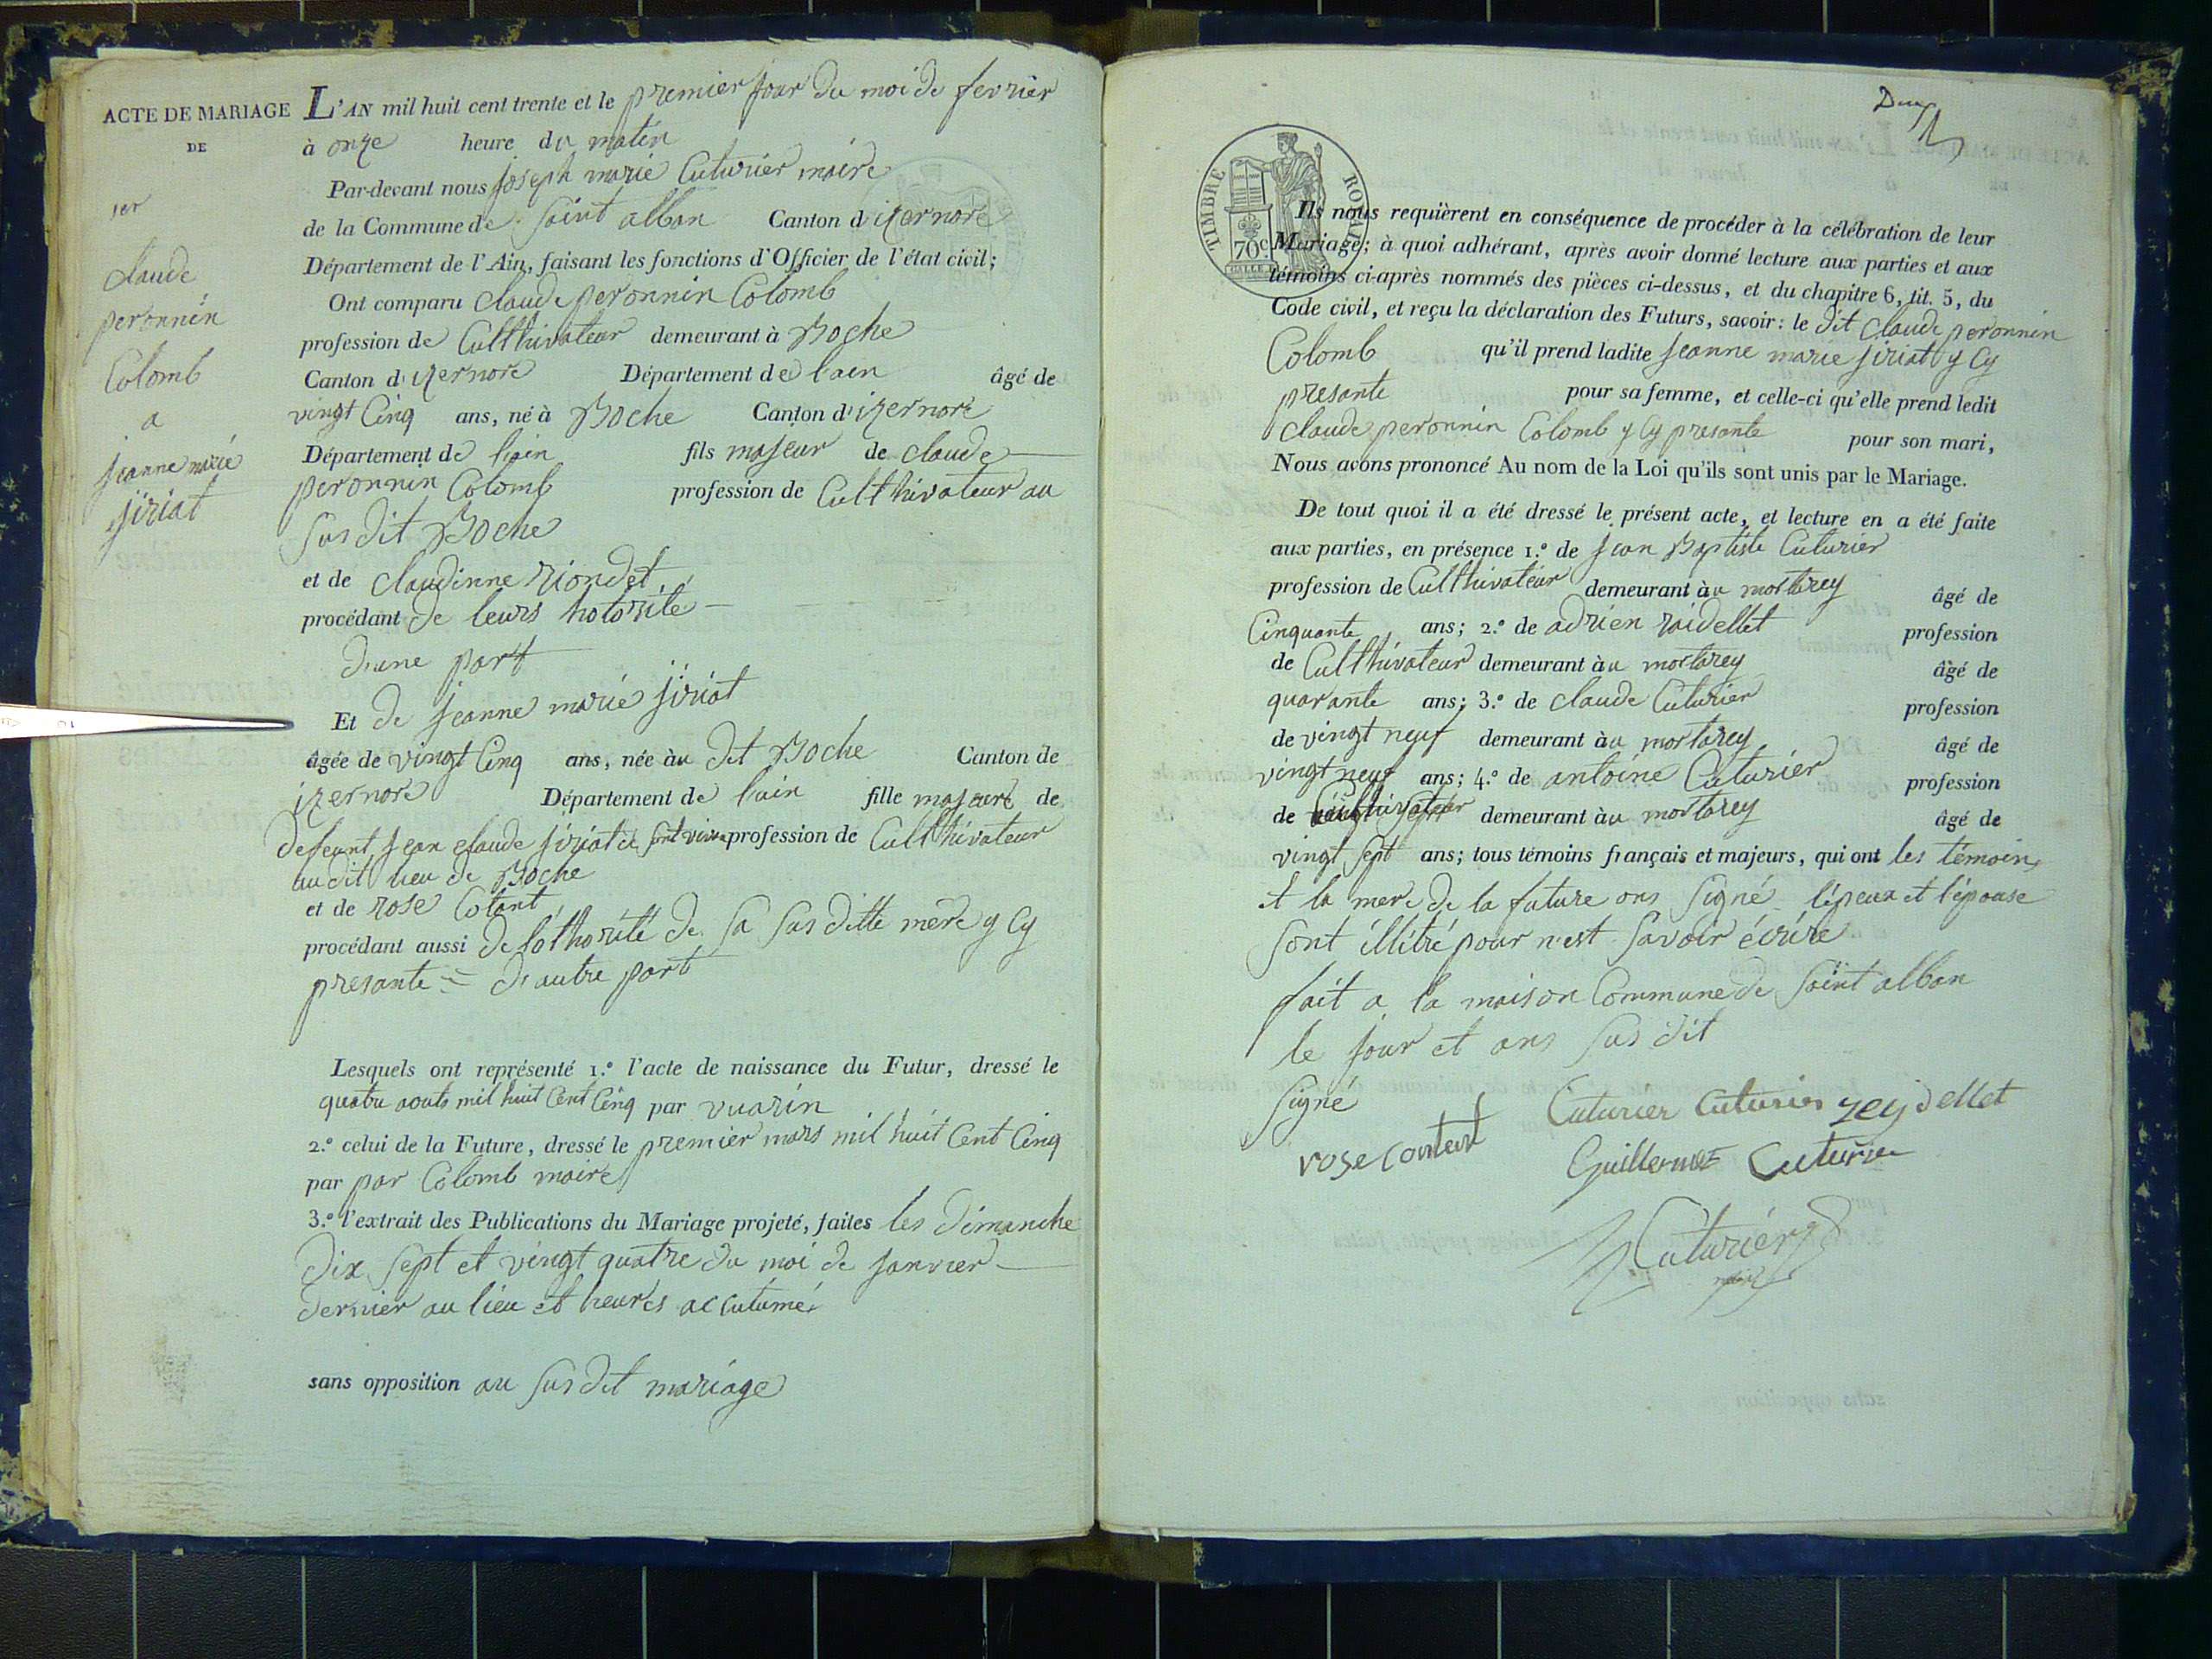 ACTE DE MARIAGE
DE
1er
claude
peronnin
Colomb
a
jeanne marie
jiriat
L'AN mil huit cent trente et le premier jour du moi de fevrier
à onze heure du matin
Par-devant nous joseph marie Cuturier maire
de la Commune de Saint alban Canton d izernore
Département de l'Ain, faisant les fonctions d'Officier de l'état civil;
Ont comparu claude peronnin Colomb
profession de Culthivateur demeurant à Boche
Canton d'izernore Département de lain âgé de
vingt Cinq ans, né à Boche Canton d'izernore
Département de lain fils majeur de claude
peronnin Colomb profession de Cultthivateur au
Susdit Boche
et de claudinne riondet
procédant de leurs hotorité
d'une part
Et de jeanne marie jiriat
âgée de vingt Cinq ans, née àu dit Boche Canton de
izernore Département de lain fille majeure de
defeunt jean claude jiriat profession de Cultthivateur
audit lieu de Boche
et de rose Cotant
procédant aussi de lothorité de Sa Susditte mere y Cy
presante = d'autre part
Lesquels ont représenté 1.º l'acte de naissance du Futur, dressé le
quatre aouts mil huit Cent Cinq par vuarin
2.º celui de la Future, dressé le premier mars mil huit Cent Cinq
par par Colomb maire
3.º l'extrait des Publications du Mariage projeté, faites les dimanche
dix Sept et vingt quatre du moi de janvier
dernier au lieu et heures accutumé
sans opposition au Susdit mariage
TIMBRE ROYAL
70c.
Ils nous requièrent en conséquence de procéder à la célébration de leur
Mariage; à quoi adhérant, après avoir donné lecture aux parties et aux
témoins ci-après nommés des pièces ci-dessus, et du chapitre 6, tit. 5, du
Code civil, et reçu la déclaration des Futurs, savoir: le dit claude peronnin
Colomb qu'il prend ladite jeanne marie jiriat y Cy
presante pour sa femme, et celle-ci qu'elle prend ledit
claude peronnin Colomb y Cy presante pour son mari,
Nous avons prononcé Au nom de la Loi qu'ils sont unis par le Mariage.
De tout quoi il a été dressé le présent acte, et lecture en a été faite
aux parties, en présence 1.º de jean Baptiste Cuturier
profession de Cultthivateur demeurant àu mortarey âgé de
Cinquante ans; 2.º de adrien raidellet profession
de Cultthivateur demeurant àu mortarey âgé de
quarante ans; 3.º de claude Cuturier profession
de vingt neuf demeurant àu mortarey âgé de
vingt neuf ans; 4.º de antoine Cuturier profession
de demeurant àu mortarey âgé de
vingt Sept ans; tous témoins français et majeurs, qui ont les témoins
et la mere de la future ons Signé lépeux et l'épouse
Sont illitré pour n'est Savoir écrire
fait a la maison Commune de Saint alban
le jour et ans Susdit
Signé Cuturier Cuturier reydellet
rose contant Guillermet Cuturier
Cuturier